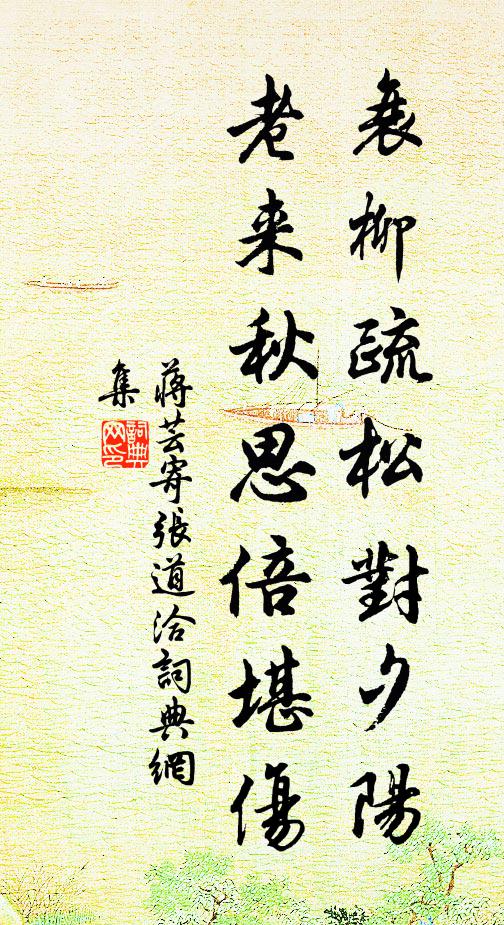 衰柳疏松對夕陽
老来秋思倍堪傷
蔣芸寄張道洽詞典網
集
詞典网印